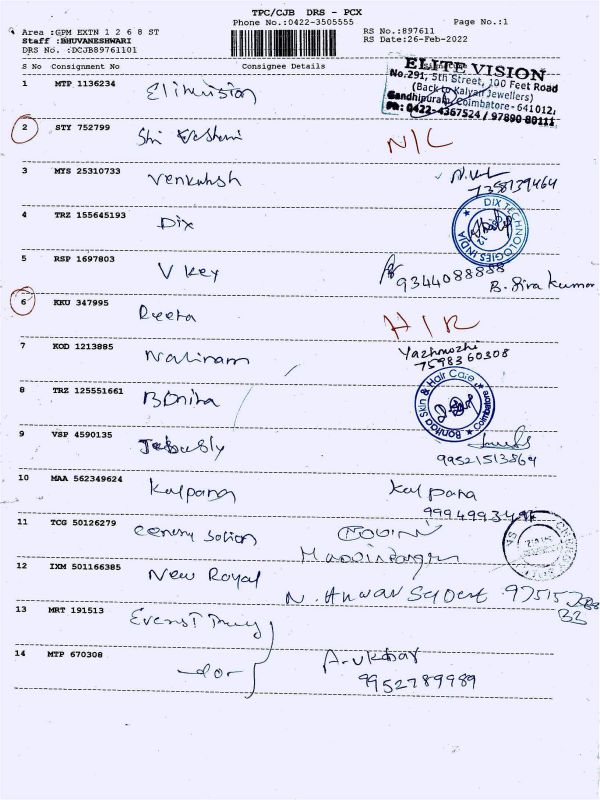 TPC/CJB DRS - PCX
Phone No.:0422-3505555 Page No.:1
Area :GPM EXTN 1 2 6 8 ST RS No.:897611
Staff :BHUVANESHWARI RS Date:26-Feb-2022
DRS No. :DCJB89761101
S No Consignment No Consignee Details
ELITE VISION
No.291, 5th Street, 100 Feet Road
(Back to Kalyan Jewellers)
Gandhipuram, Coimbatore - 641012.
Ph: 0422-4367524 / 97890 80111
1 MTP 1136234 Elitevision
2 STY 752799 Sri N/C
3 MTS 25310733 Venkatesh
7358739464
4 TRZ 155645193 Dix
DIX TECHNOLOGIES INDIA
5 RSP 1697803 V Key 9344088888
B. Siva Kumar
6 KKU 347995 Reeta H/R
7 KOD 1213885 Nalinam Yazhmozhi
7598360308
8 TRZ 125551661 BDnita
Bonitaa Skin & Hair Care Coimbatore
9 VSP 4590135
99521513864
10 MAA 562349624 Kalpana Kalpana
11 TCG 50126279
12 IXM 501166385 New Royal
13 MRT 191513
14 MTP 670308 -do-
9952789989